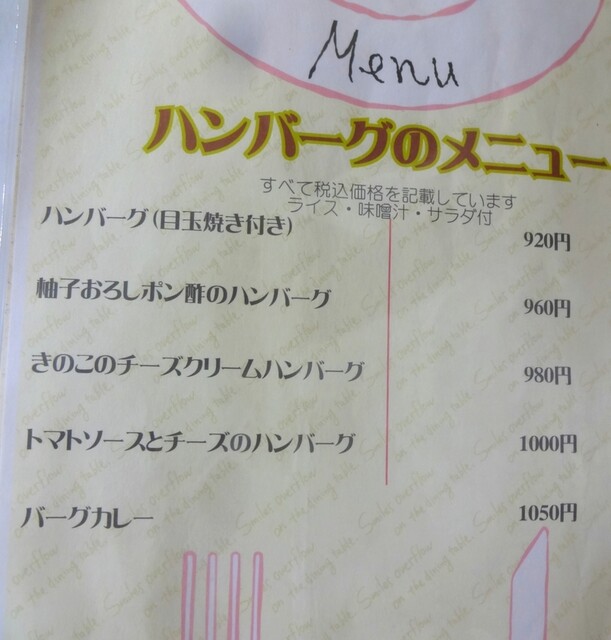 Menu
ハンバーグのメニュー
すべて税込価格を記載しています
ライス・味噌汁・サラダ付
ハンバーグ(目玉焼き付き) 920円
柚子おろしポン酢のハンバーグ 960円
きのこのチーズクリームハンバーグ 980円
トマトソースとチーズのハンバーグ 1000円
バーグカレー 1050円